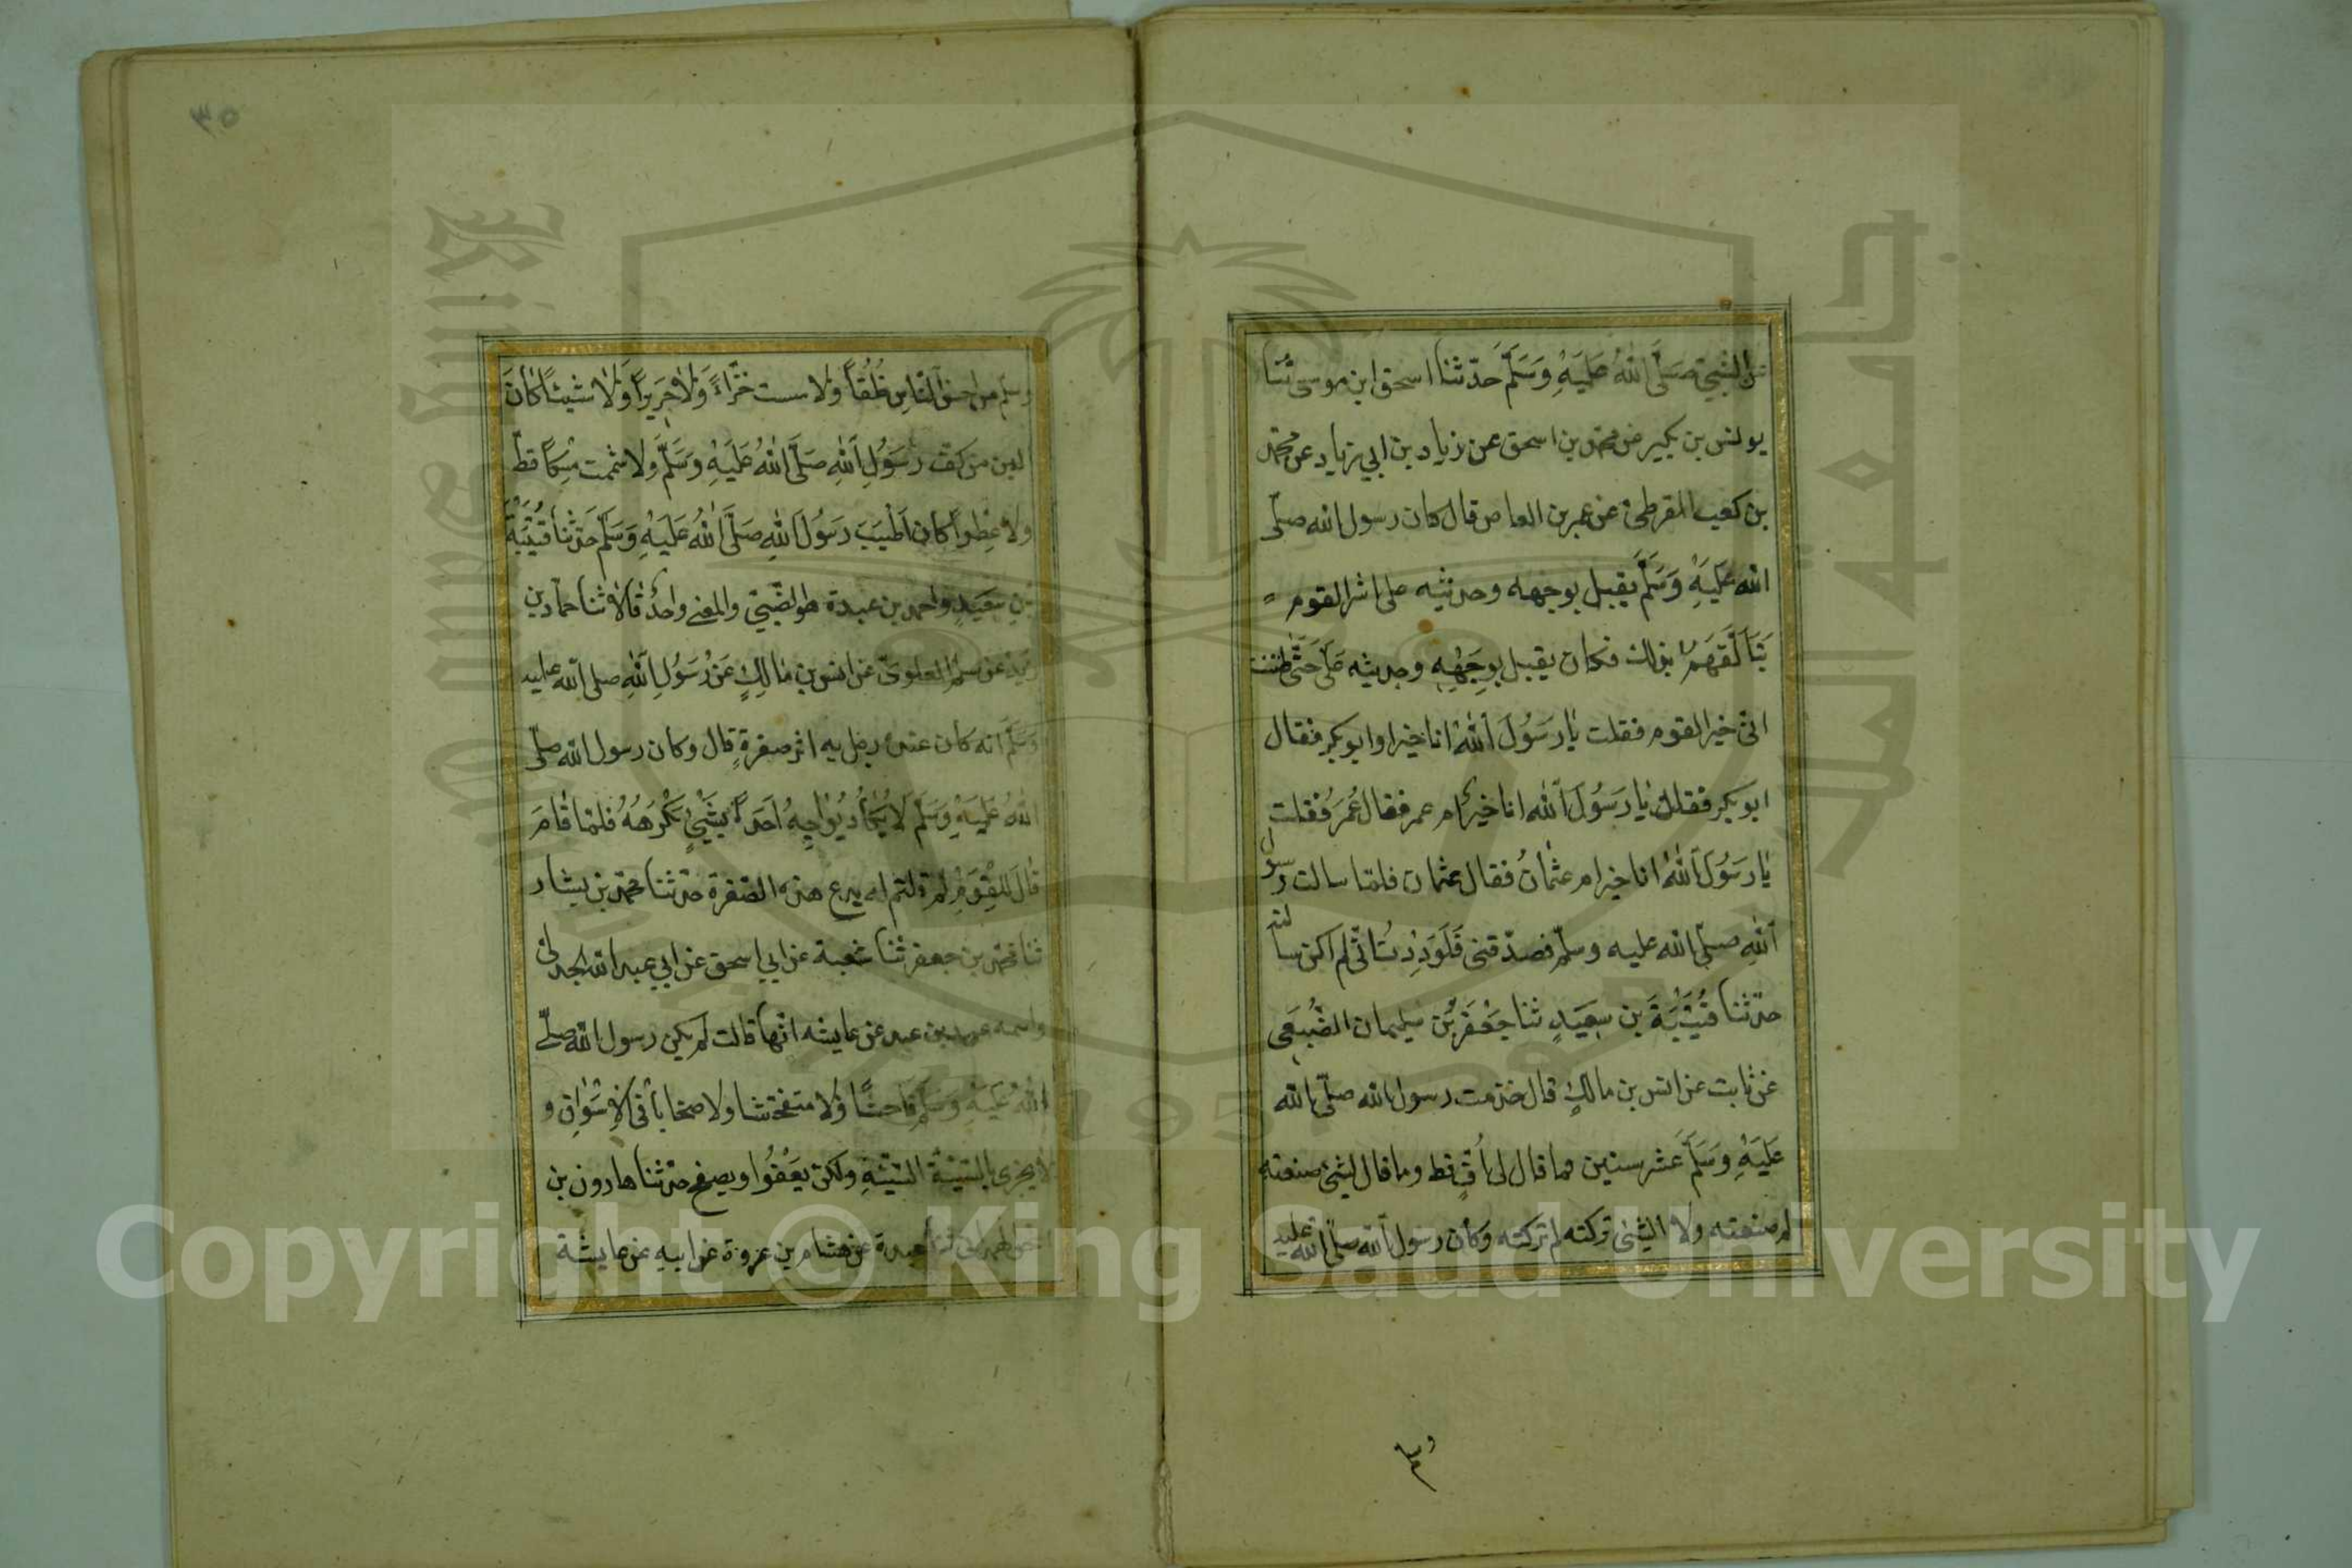 النبي صَلَّى اللهُ عَلَيْهِ وَسَلَّمَ حَدّثنا اسحق ابن موسى ثنا
يونس بن بكير عن محمد بن اسحق عن زياد بن ابي زياد عن محمّد
بن كعب القرظي عن عمر بن العاص قال كان رسول الله صلّى
الله عَلَيْهِ وَسَلَّمَ يقبل بوجهه وحديثه على اشر القوم
يَتَأَلَّفَهُمْ بذلك فكان يقبل بوجهه وحديثه عَلَيَّ حَتّٰى ظننت
انّى خير القوم فقلت يٰا رَسُولَ اللهِ انا خير او ابو بكر فقال
ابو بكر فقلت يٰا رَسُولَ اللهِ انا خير ام عمر فقال عُمَرُ فقلت
يٰا رَسُولَ اللهِ انا خير ام عثمٰانُ فقال عثمان فلمّا سالت رسول
اللهِ صلّى الله عليه وسلّم فصدّقنى فَلَوَدِدتُ انّى لم اكن سالته
حدّثنا قُتَيْبَةَ بن سعيدٍ ثنا جَعْفَرْ بْن سليمان الضُّبَعى
عن ثابت عن انس بن مالكٍ قال خدمت رسول الله صلّى الله
عَلَيْهِ وَسَلَّمَ عَشر سنين فما قال لى اُفٍّ قط وما قال لشئ صنعته
لم صنعته ولا لشئ تركته لم تركته وكان رسول الله صلّى الله عليه
وسلّم
وسلّم من احسن النّاسِ خُلُقاً ولا مست خَزّاً وَلٰا حَرِيراً وَلٰا شيئاً كٰانَ
الين من كفّ رَسُولِ اللهِ صَلَّى اللهُ عَلَيْهِ وَسَلَّمَ ولا شممت مِسْكاً قطّ
ولا عِطراً كان اَطْيَبَ رَسُولَ اللهِ صَلَّى اللهُ عَلَيْهِ وَسَلَّمَ حَدثنا قُتَيْبَةُ
بن سَعِيدٍ واحمد بن عبدة هو الضّبّي والمعنى واحدٌ قٰالا ثنا حمّاد بن
زيد عن سلم العلوىّ عن انس بن مٰالِكٍ عَنْ رَسُولِ اللهِ صلى الله عليه
وَسَلَّمَ انه كان عنده رجل به اثر صفرةٍ قال وكان رسول الله صلّى
اللهُ عَلَيْهِ وَسَلَّمَ لاٰ يَكٰادُ يُوٰاجِهُ اَحَداً بِشَيْءٍ يَكْرَهُهُ فلمّا قٰامَ
قٰالَ لِلْقَوْمِ لو قلتم له يدع هذه الصّفرة حدّثنا محمّد بن بشّار
ثنا محمّد بن جعفر ثنا شعبة عن ابي اسحق عن ابي عبد الله الجدلى
واسمه عبد بن عبد عن عايشه انّها قالت لم يكن رسول الله صلّى
اللهُ عَلَيْهِ وَسَلَّمَ فاحشًا وَلٰا متفحّشا ولا صخّاباً فى الاسْوٰاقِ و
لا يجزى بالسّيّئةَ السّيّئةِ ولكن يَعْفُوا ويصفح حدّثنا هارون بن
اسحق الهمدانى عبدة عن هشام بن عروة عن ابيهِ عن عايشة
٣٥
Copyright © King Saud University
1957